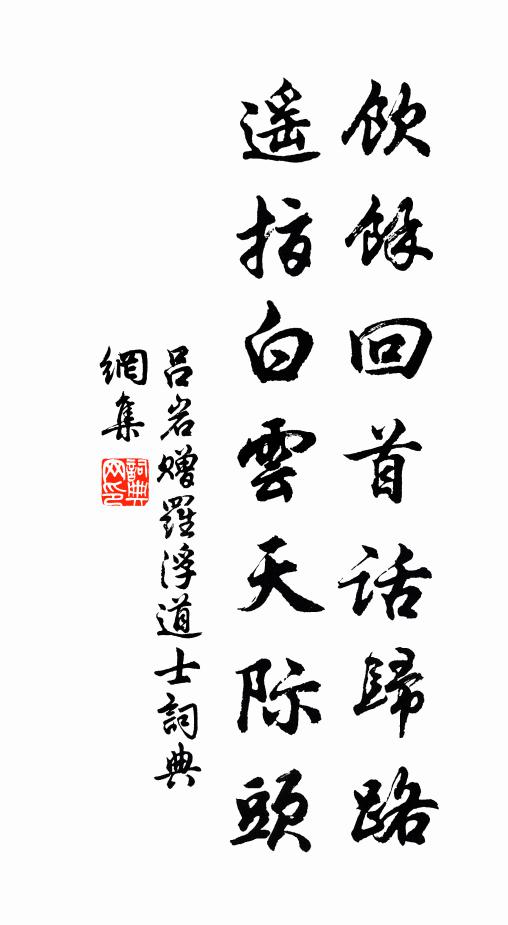 飲餘回首話歸路
遥指白雲天际頭
吕岩赠羅浮道士詞典
網集
詞典
网印